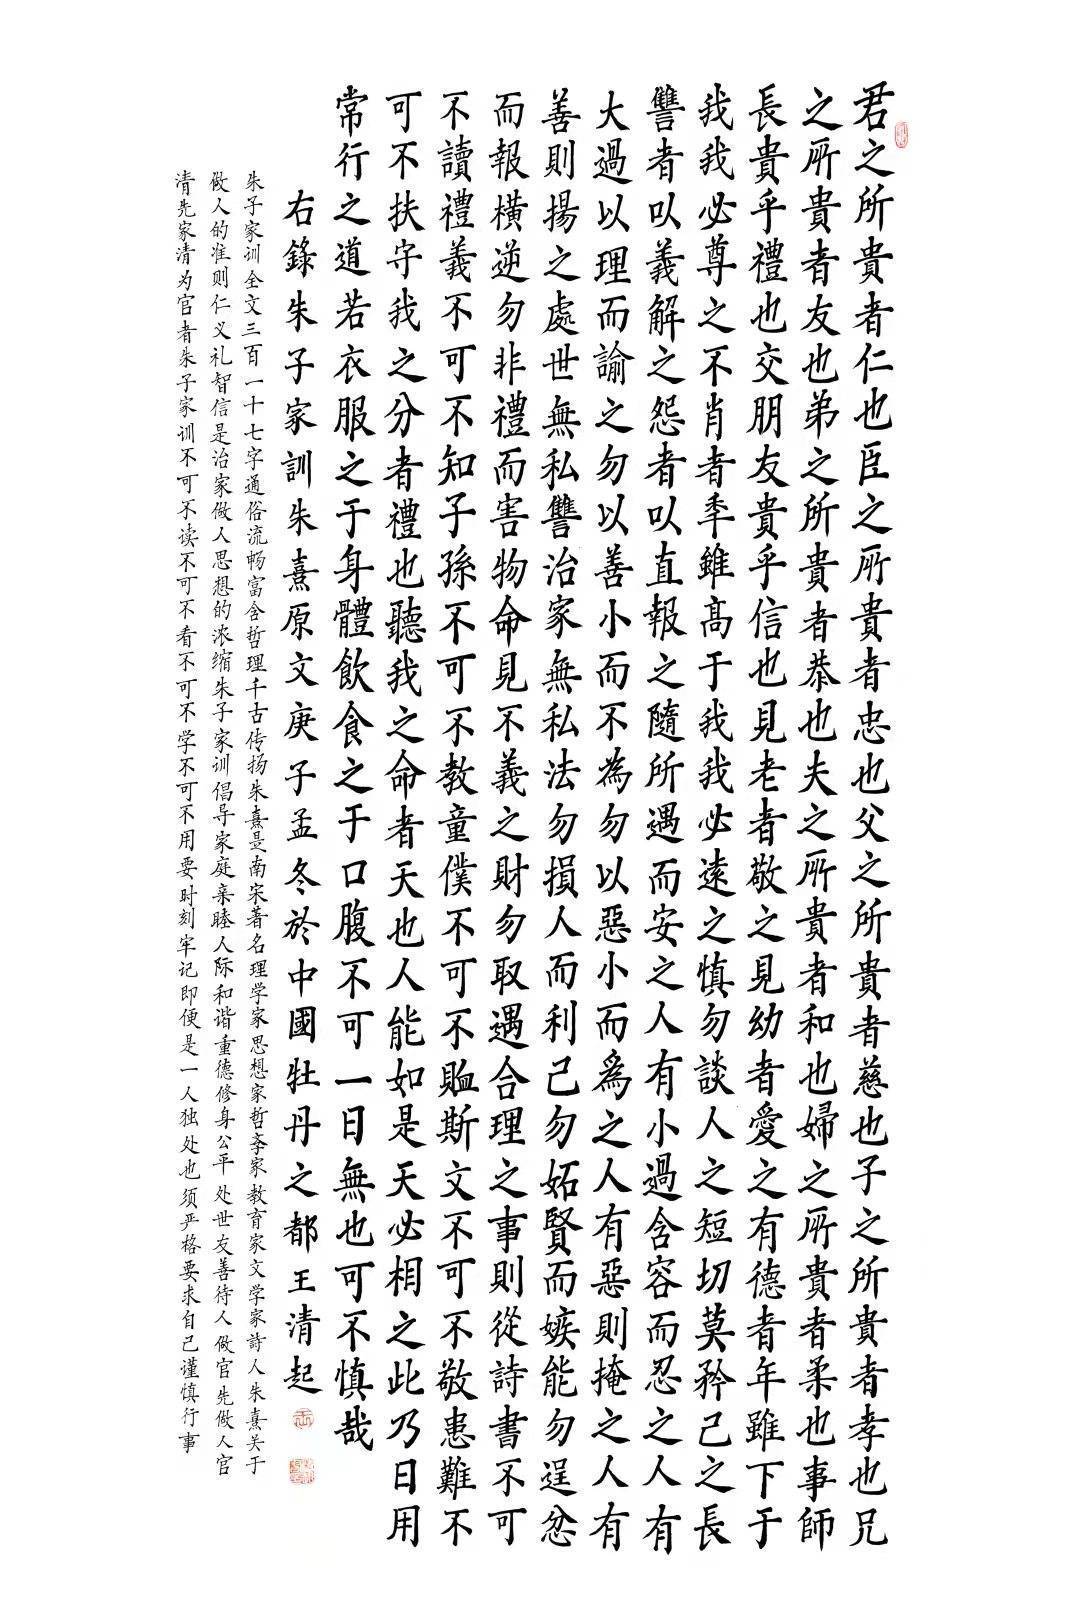 君之所貴者仁也臣之所貴者忠也父之所貴者慈也子之所貴者孝也兄
之所貴者友也弟之所貴者恭也夫之所貴者和也婦之所貴者柔也事師
長貴乎禮也交朋友貴乎信也見老者敬之見幼者愛之有德者年雖下于
我我必尊之不肖者季雖高于我我必遠之慎勿談人之短切莫矜己之長
讐者以義解之怨者以直報之隨所遇而安之人有小過含容而忍之人有
大過以理而諭之勿以善小而不為勿以惡小而爲之人有惡則掩之人有
善則揚之處世無私讐治家無私法勿損人而利己勿妬賢而嫉能勿逞忿
而報橫逆勿非禮而害物命見不義之財勿取遇合理之事則從詩書不可
不讀禮義不可不知子孫不可不教童僕不可不賉斯文不可不敬患難不
可不扶守我之分者禮也聽我之命者天也人能如是天必相之此乃日用
常行之道若衣服之于身體飲食之于口腹不可一日無也可不慎哉
右錄朱子家訓朱熹原文庚子孟冬於中國牡丹之都王清起
朱子家训全文三百一十七字通俗流畅富含哲理千古传扬朱熹是南宋著名理学家思想家哲学家教育家文学家詩人朱熹关于
做人的准则仁义礼智信是治家做人思想的浓缩朱子家训倡导家庭亲睦人际和谐重德修身公平处世友善待人做官先做人官
清先家清为官者朱子家训不可不读不可不看不可不学不可不用要时刻牢记即便是一人独处也须严格要求自己谨慎行事